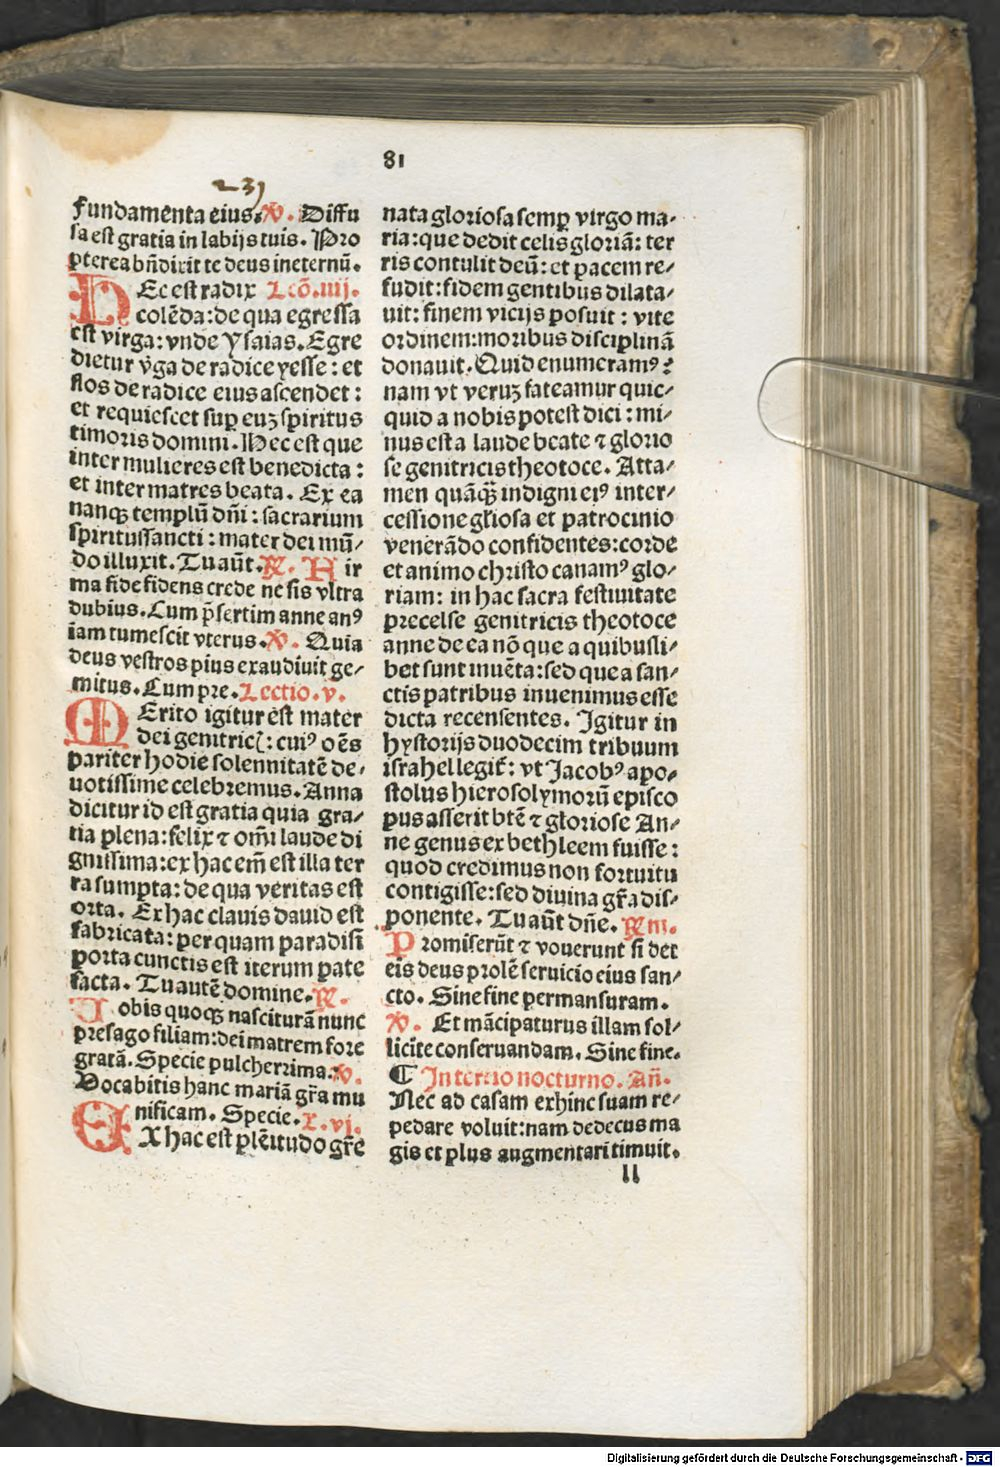 81
231
fundamenta eius. ℣. Diffu
sa est gratia in labijs tuis. Pro
pterea bn̄dixit te deus ineternū.
HEc est radix Lcō.iiij.
colēda: de qua egressa
est virga: vnde Ysaias. Egre
dietur v̄ga de radice yesse: et
flos de radice eius ascendet:
et requiescet suꝑ euꝫ spiritus
timoris domini. Hec est que
inter mulieres est benedicta:
et inter matres beata. Ex ea
nanqꝫ templū dn̄i: sacrarium
spiritussancti: mater dei mū-
do illuxit. Tu aūt. ℟. Hir
ma fide fidens crede ne sis vltra
dubius. Cum p̄sertim anne anꝰ
iam tumescit vterus. ℣. Quia
deus vestros pius exaudiuit ge-
mitus. Cum pre. Lectio.v.
MErito igitur est mater
dei genitricꝭ: cuiꝰ oēs
pariter hodie solennitatē de-
uotissime celebremus. Anna
dicitur id est gratia quia gra-
tia plena: felix ⁊ om̄i laude di
gnissima: ex hac em̄ est illa ter
ra sumpta: de qua veritas est
orta. Ex hac clauis dauid est
fabricata: per quam paradisi
porta cunctis est iterum pate
facta. Tu autē domine. ℟.
Nobis quoqꝫ nasciturā nunc
presago filiam: dei matrem fore
gratā. Specie pulcherrima. ℣.
Vocabitis hanc mariā gr̄a mu
nificam. Specie. L.vj.
EX hac est plēitudo gr̄e
nata gloriosa semꝑ virgo ma-
ria: que dedit celis gloriā: ter
ris contulit deū: et pacem re-
fudit: fidem gentibus dilata-
uit: finem vicijs posuit: vite
ordinem: moribus disciplinā
donauit. Quid enumeramꝰ?
nam vt veruꝫ fateamur quic-
quid a nobis potest dici: mi-
nus est a laude beate ⁊ glorio
se genitricis theotoce. Atta-
men quāqꝫ̄ indigni eiꝰ inter-
cessione gl'iosa et patrocinio
venerādo confidentes: corde
et animo christo canamꝰ glo-
riam: in hac sacra festiuitate
precelse genitricis theotoce
anne de ea nō que a quibusli-
bet sunt inuēta: sed que a san-
ctis patribus inuenimus esse
dicta recensentes. Igitur in
hystorijs duodecim tribuum
israhel legit̄: vt Jacobꝰ apo-
stolus hierosolymorū episco
pus asserit btē ⁊ gloriose An-
ne genus ex bethleem fuisse:
quod credimus non fortuitu
contigisse: sed diuina gr̄a dis-
ponente. Tu aūt dn̄e. ℟m.
Promiserūt ⁊ vouerunt si det
eis deus prolē seruicio eius san-
cto. Sine fine permansuram.
℣. Et mācipaturus illam sol-
licite conseruandam. Sine fine.
¶ In tertio nocturno. An̄.
Nec ad casam exhinc suam re-
pedare voluit: nam dedecus ma
gis et plus augmentari timuit.
ll
Digitalisierung gefördert durch die Deutsche Forschungsgemeinschaft - DFG